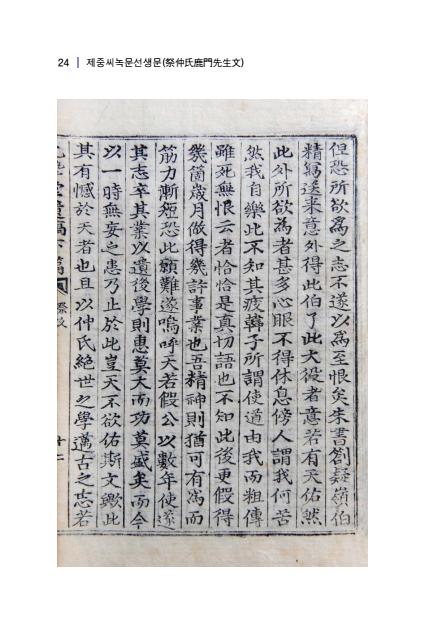 24 | 제중씨녹문선생문(祭仲氏鹿門先生文)
但恐所欲爲之志不遂以爲至恨矣朱書箚疑嶺伯
精寫送来意外得此伯了此大役者意若有天佑然
此外所欲為者甚多心眼不得休息傍人謂我何苦
然我自樂此不知其疲韓子所謂使道由我而粗傳
雖死無恨云者恰恰是真切語也不知此後更假得
幾箇歲月做得幾許事業也吾精神則猶可有為而
筋力漸痙恐此願難遂嗚呼天若假公以數年使遂
其志卒其業以遺後學則惠莫大而功莫盛矣而今
以一時無妄之患乃止於此豈天不欲佑斯文歟此
其有憾於天者也且以仲氏絶世之學邁古之志若
下篇
祭文
十二